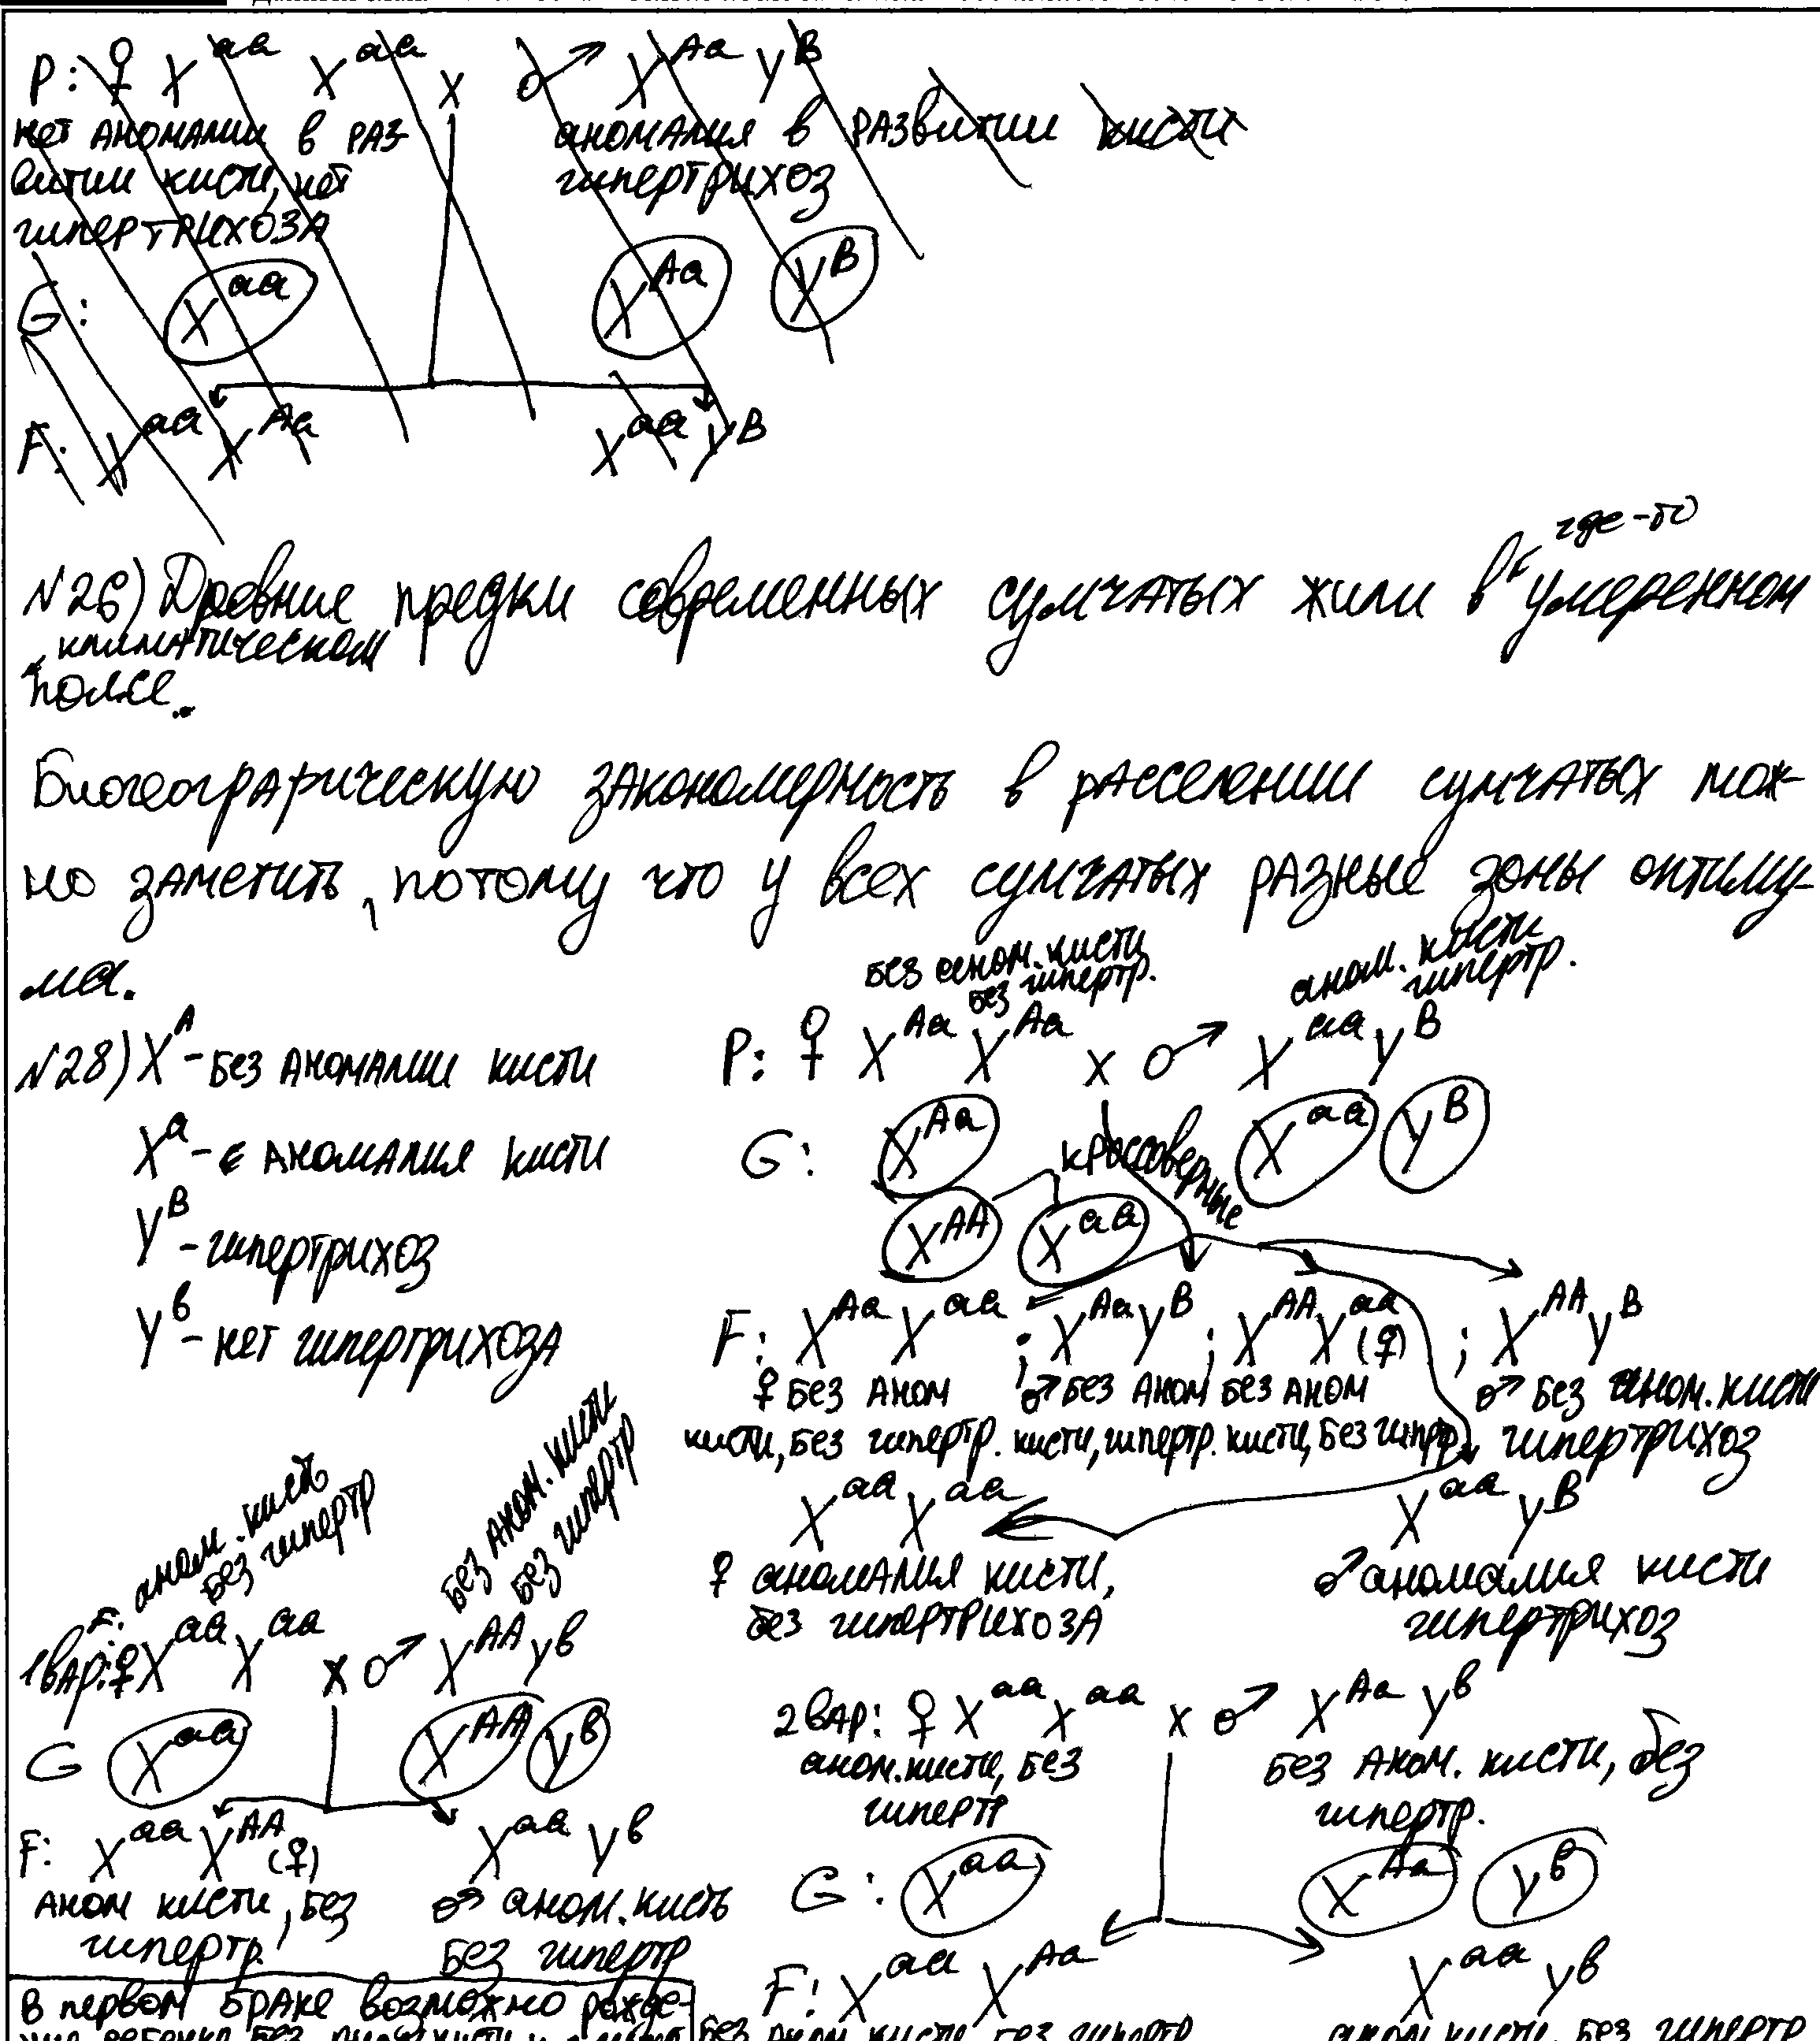 P: ♀ X^aa X^aa x ♂ X^Aa Y^B
нет аномалии в раз-
витии кисти, нет
гипертрихоза
аномалия в развитии кисти
гипертрихоз
G: X^aa X^Aa Y^B
F: X^aa X^Aa X^aa Y^B
№26) Древние предки современных сумчатых жили в где-то умеренном
климатическом
поясе.
Биогеографическую закономерность в расселении сумчатых мож-
но заметить, потому что у всех сумчатых разные зоны оптиму-
ма.
№28) X^A - без аномалии кисти
X^a - аномалия кисти
Y^B - гипертрихоз
Y^b - нет гипертрихоза
без аном. кисти
без гипертр.
аном. кисти
гипертр.
P: ♀ X^Aa X^Aa x ♂ X^aa Y^B
G: X^Aa X^aa Y^B
кроссоверные
X^AA X^aa
F: X^Aa X^aa ; X^Aa Y^B ; X^AA X^aa (♀) ; X^AA Y^B
♀ без аном ♂ без аном без аном ♂ без аном. кисти
кисти, без гипертр. кисти, гипертр. кисти, без гипертр гипертрихоз
X^aa X^aa X^aa Y^B
♀ аномалия кисти, ♂ аномалия кисти
без гипертрихоза гипертрихоз
аном. кисть
без гипертр
без аном. кисти
без гипертр
1 вар: ♀ X^aa X^aa x ♂ X^AA Y^b
G X^aa X^AA Y^b
F: X^aa X^AA (♀) X^aa Y^b
аном кисти, без ♂ аном. кисть
гипертр. без гипертр
2 вар: ♀ X^aa X^aa x ♂ X^Aa Y^b
аном. кисти, без без аном. кисти, без
гиперт гипертр.
G: X^aa X^Aa Y^b
F: X^aa X^Aa X^aa Y^b
без аном кисти, без гипертр аном кисти, без гипертр
В первом браке возможно рожде-